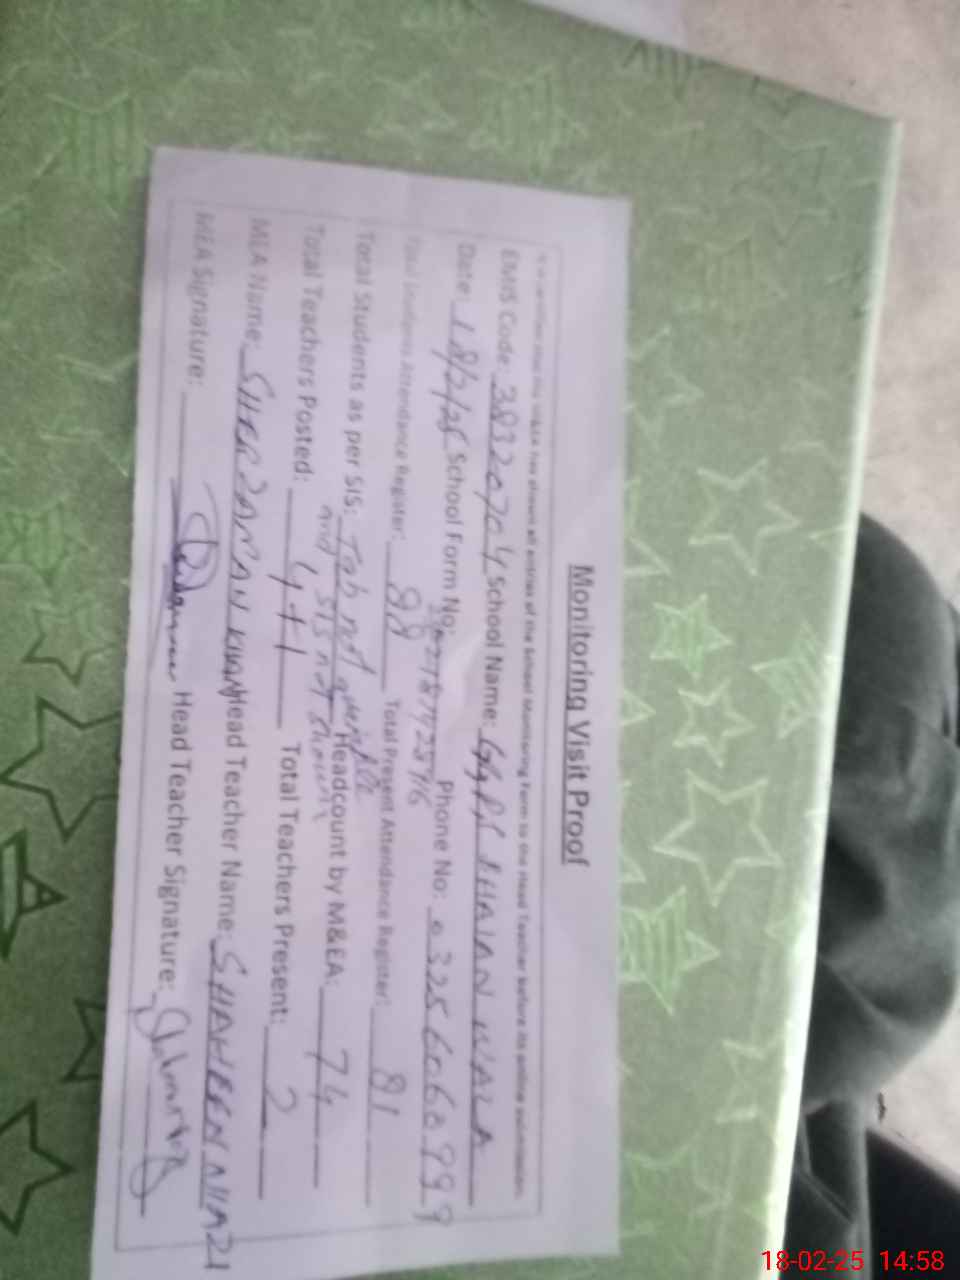 Monitoring Visit Proof
It is verified that the M&EA has shown all entries of the School Monitoring Form to the Head Teacher before its online submission.
EMIS Code: 38320704 School Name: GGPS JHALAN WALA
Date: 18/2/25 School Form No: Phone No: 03256068999
Total Students Attendance Register: 88 Total Present Attendance Register: 81
Total Students as per SIS: Tab not and SIS not shown Headcount by M&EA: 74
Total Teachers Posted: 4+1 Total Teachers Present: 2
MEA Name: SHER ZAMAN KHAN Head Teacher Name: SHAHEEN NIAZI
MEA Signature: Head Teacher Signature:
18-02-25 14:58